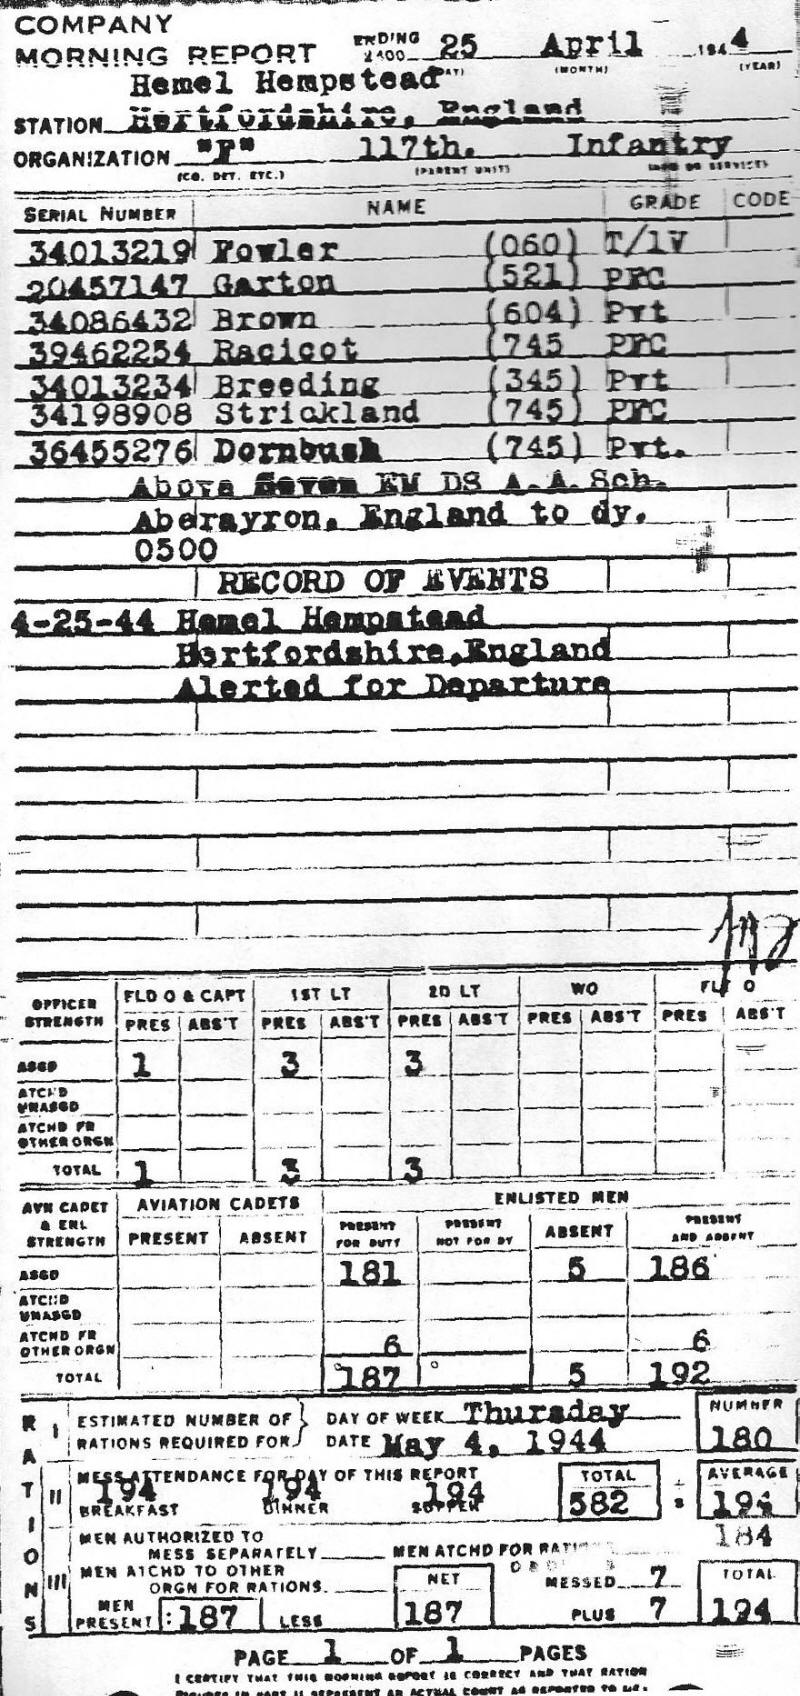 COMPANY
MORNING REPORT ENDING 2400 25 April 1944
(DAY) (MONTH) (YEAR)
Hemel Hempstead
STATION Hertfordshire, England
ORGANIZATION "F" 117th. Infantry
(CO. DET. ETC.) (PARENT UNIT) (ARM OR SERVICE)
SERIAL NUMBER NAME GRADE CODE
34013219 Fowler (060) T/1V
20457147 Garton (521) PFC
34086432 Brown (604) Pvt
39462254 Racicot (745 PFC
34013234 Breeding (345) Pvt
34198908 Strickland (745) PFC
36455276 Dornbush (745) Pvt.
Above Seven EM DS A.A.Sch.
Aberayron, England to dy.
0500
RECORD OF EVENTS
4-25-44 Hemel Hempstead
Hertfordshire,England
Alerted for Departure
OFFICER STRENGTH FLD O & CAPT 1ST LT 2D LT WO FLT O
PRES ABS'T PRES ABS'T PRES ABS'T PRES ABS'T PRES ABS'T
ASGD 1 3 3
ATCHD UNASGD
ATCHD FR OTHER ORGN
TOTAL 1 3 3
AVN CADET & ENL STRENGTH AVIATION CADETS ENLISTED MEN
PRESENT ABSENT PRESENT FOR DUTY PRESENT NOT FOR DY ABSENT PRESENT AND ABSENT
ASGD 181 5 186
ATCHD UNASGD
ATCHD FR OTHER ORGN 6 6
TOTAL 187 5 192
RATIONS
I ESTIMATED NUMBER OF DAY OF WEEK Thursday NUMBER
RATIONS REQUIRED FOR DATE May 4, 1944 180
II MESS ATTENDANCE FOR DAY OF THIS REPORT TOTAL AVERAGE
194 194 194 582 ÷ 3 194
BREAKFAST DINNER SUPPER
184
MEN AUTHORIZED TO
MESS SEPARATELY MEN ATCHD FOR RATIONS
III MEN ATCHD TO OTHER
ORGN FOR RATIONS NET MESSED 7 TOTAL
MEN PRESENT :187 LESS 187 PLUS 7 194
PAGE 1 OF 1 PAGES
I CERTIFY THAT THIS MORNING REPORT IS CORRECT AND THAT RATION
FIGURES IN PART II REPRESENT AN ACTUAL COUNT AS REPORTED TO ME: